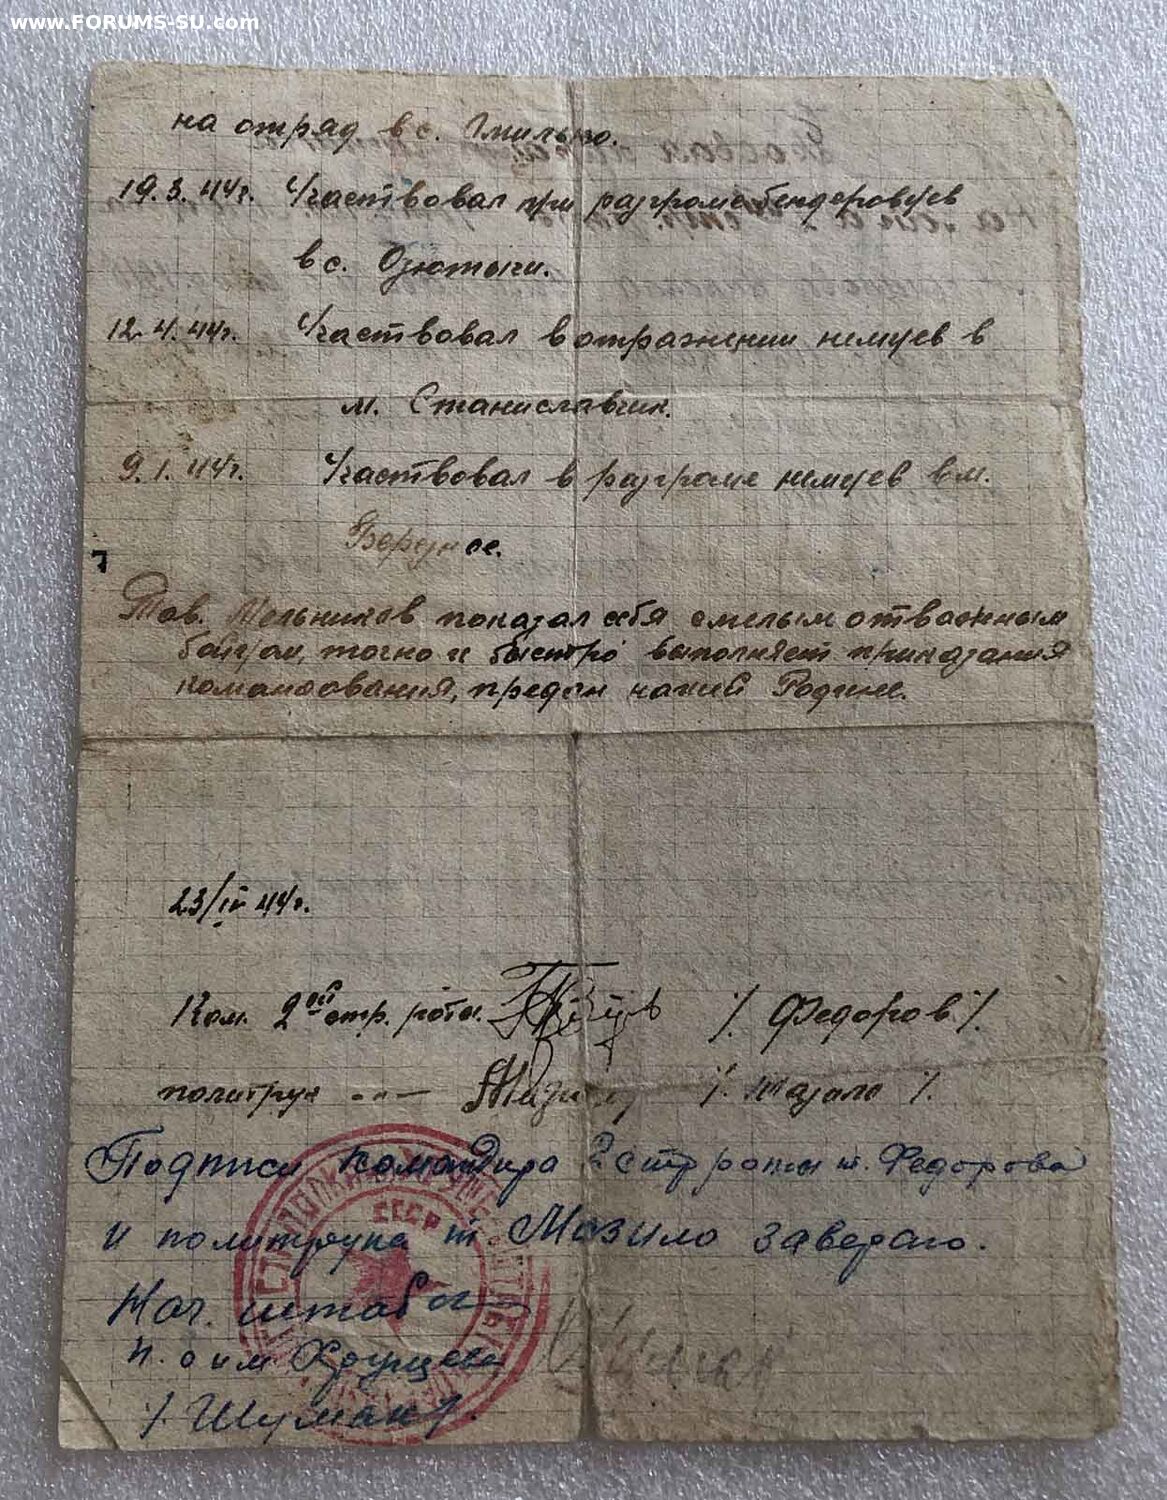 www.FORUMS-SU.com
на отряд в с. Гмильно.
19.3.44г. Участвовал при разгроме бендеровцев
в с. Озютычи.
12.4.44г. Участвовал в отражении немцев в
м. Станиславчик.
9.1.44г. Участвовал в разгроме немцев в м.
Березное.
Тов. Мельников показал себя смелым отважным
бойцом, точно и быстро выполняет приказания
командования, предан нашей Родине.
23/IV 44г.
Ком. 2ой стр. роты. /. Федоров /.
политрук -"- /. Мазало /.
Подписи командира 2 стр роты т. Федорова
и политрука т. Мазило заверяю.
СССР
Нач. штаба
п. о им Хрущева
/. Шумак /.